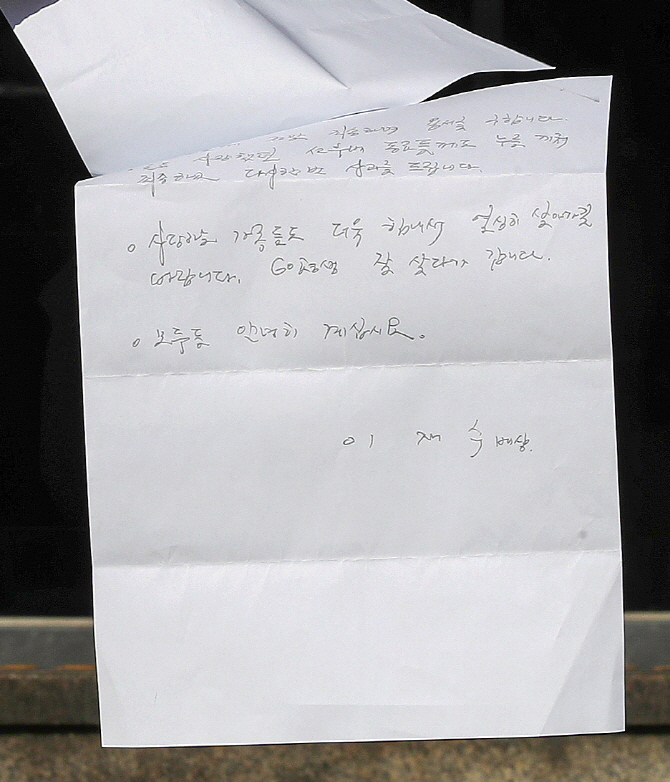 죄송하며 용서를 구합니다.
사랑했던 선후배 동료들께도 누를 끼쳐
죄송하고 다시 한번 사과를 드립니다.
○ 사랑하는 가족들도 더욱 힘내서 열심히 살아가길
바랍니다. 60평생 잘 살다가 갑니다.
○ 모두들 안녕히 계십시요.
이 재 수 배상.